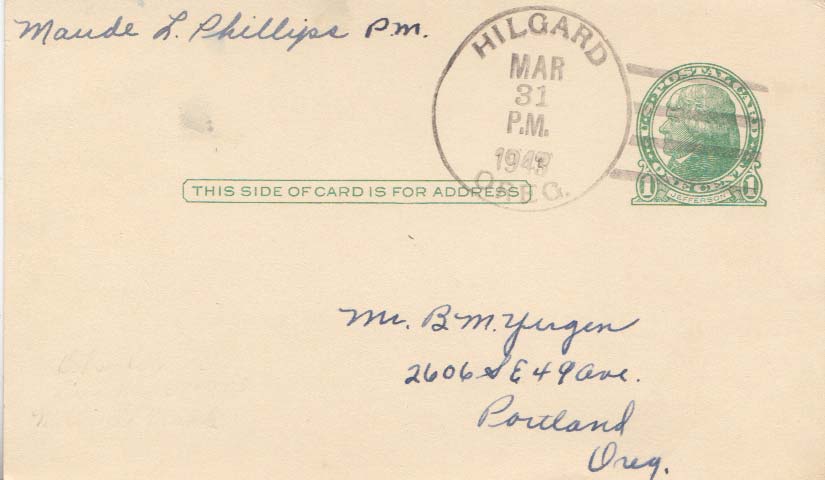 Maude L. Phillips P.M.
HILGARD
MAR
31
P.M.
OREG.
U.S. POSTAL CARD
1 ONE CENT 1
JEFFERSON
THIS SIDE OF CARD IS FOR ADDRESS
Mr. B. M. Yergen
2606 S E 49 Ave.
Portland
Oreg.